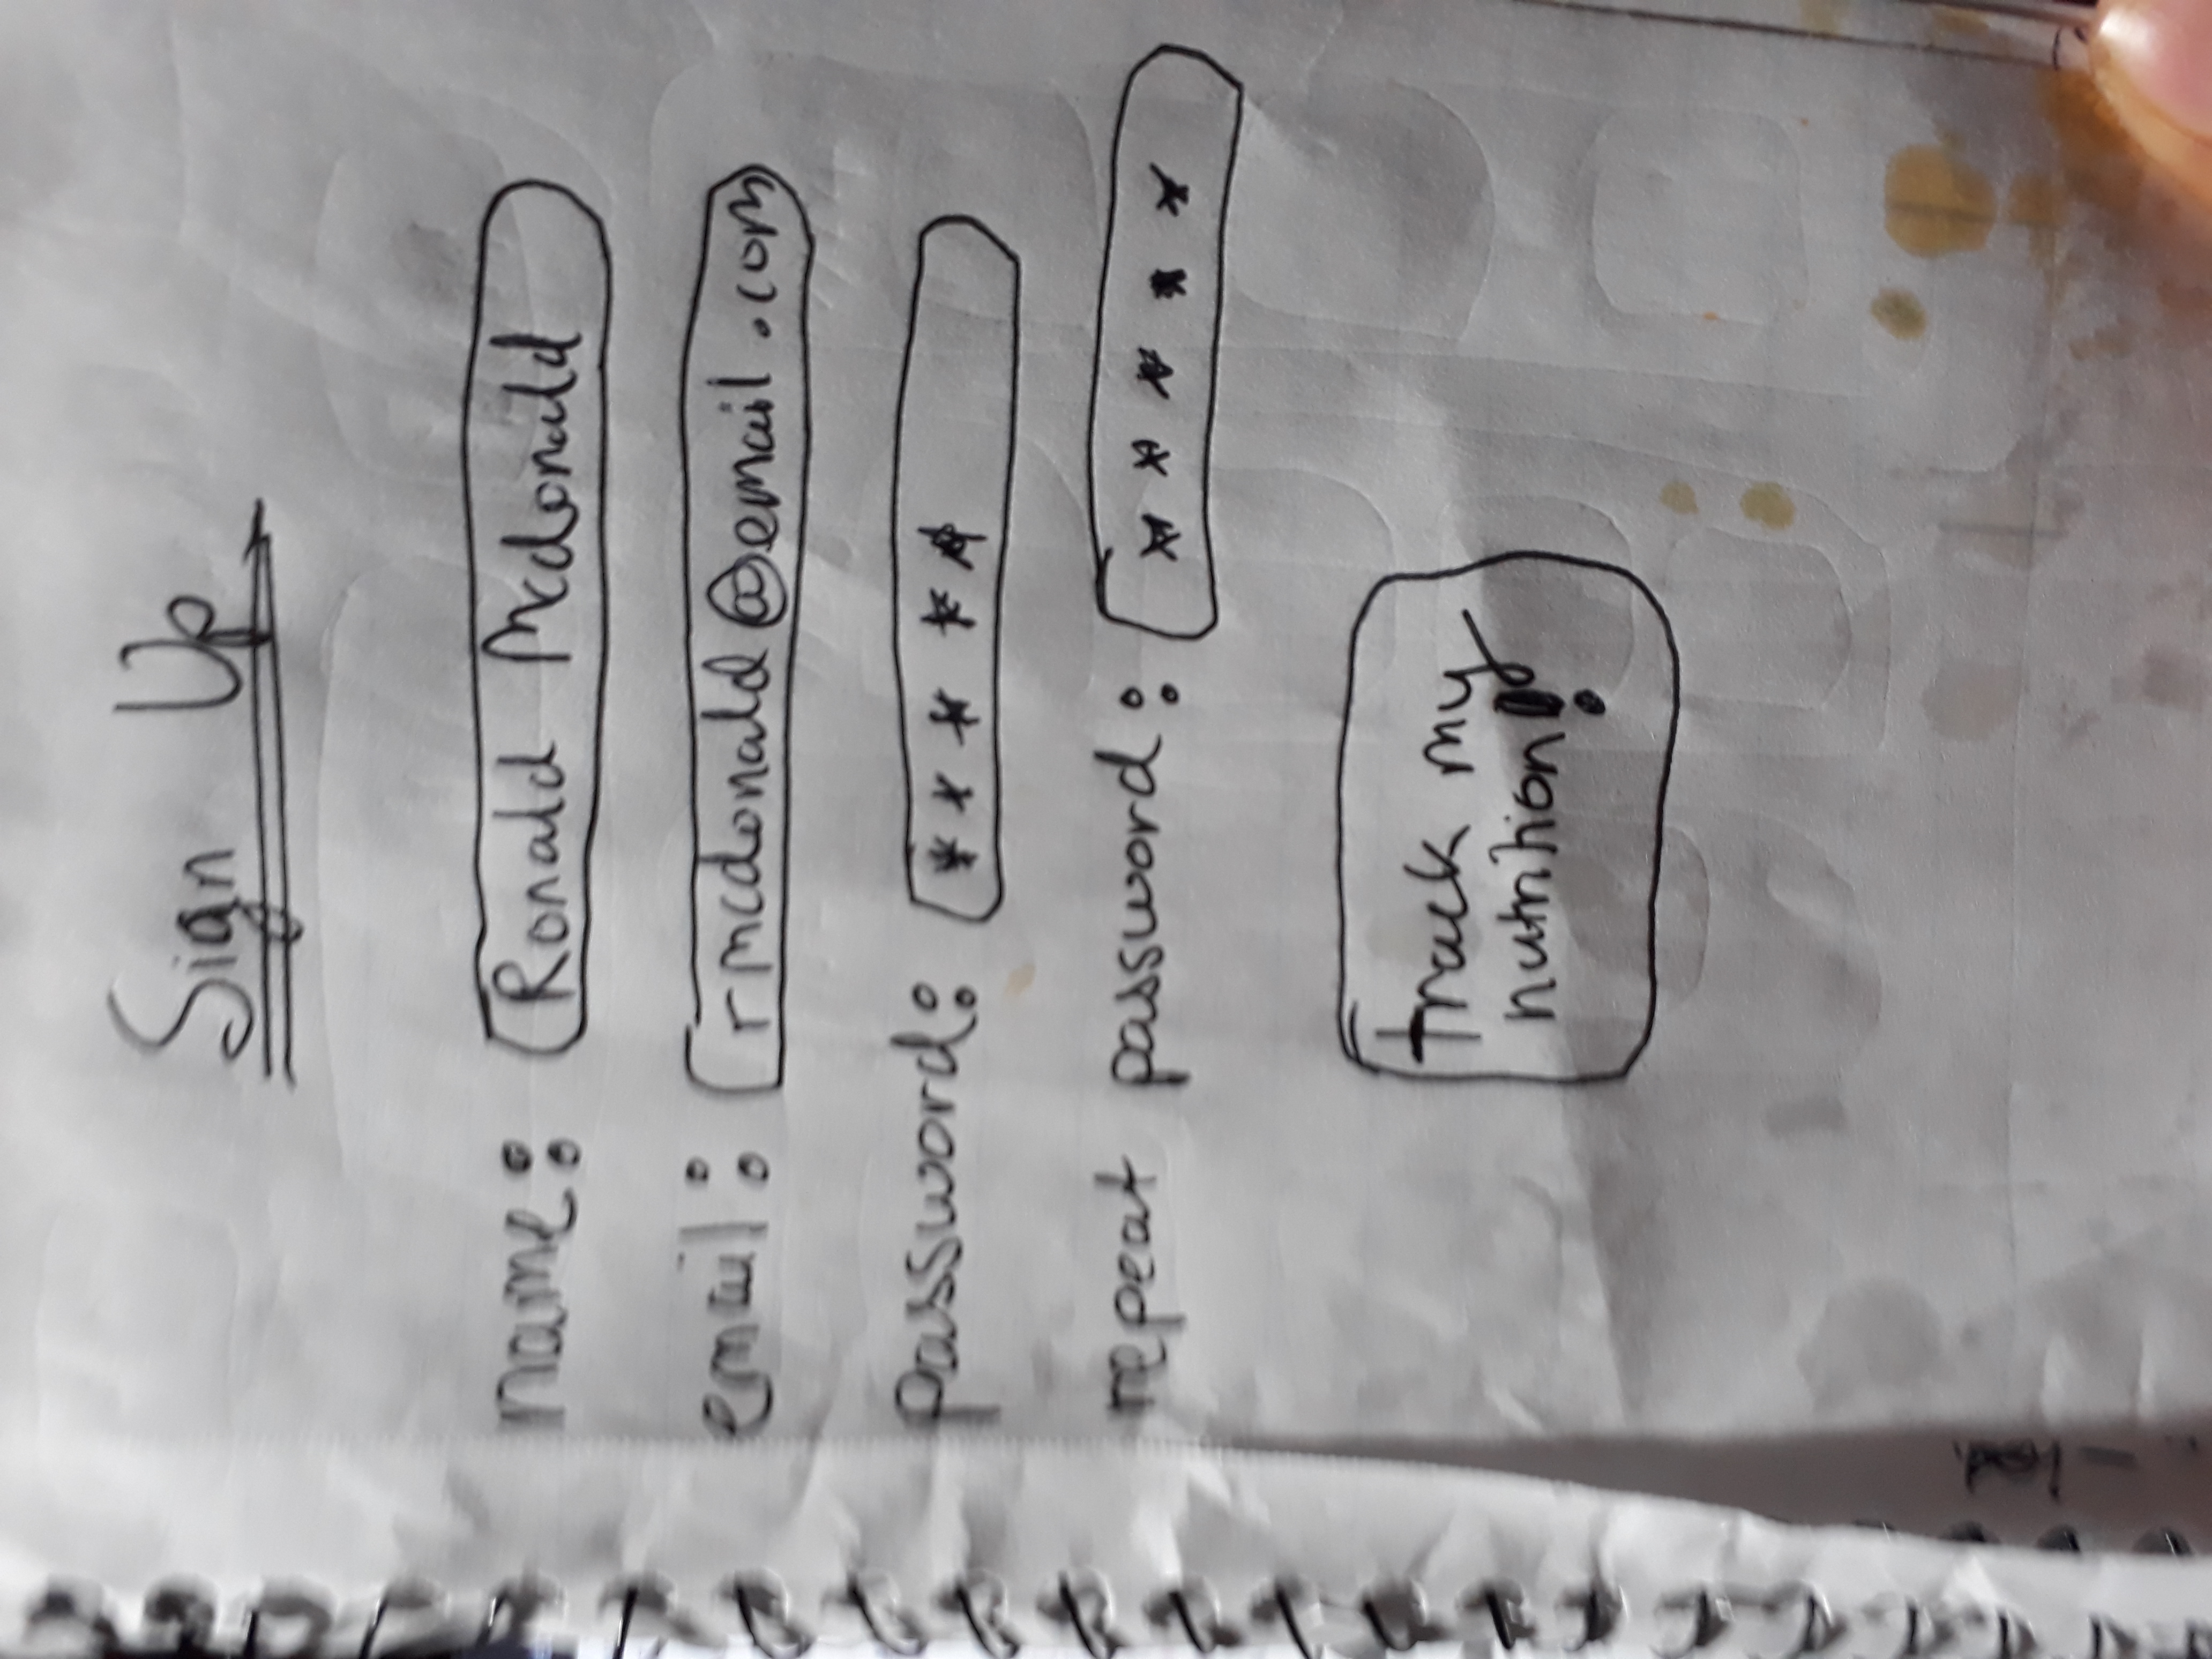 Sign Up
name: Ronald Mcdonald
email: rmcdonald@email.com
password: * * * * *
repeat password: * * * * *
track my
nutrition!